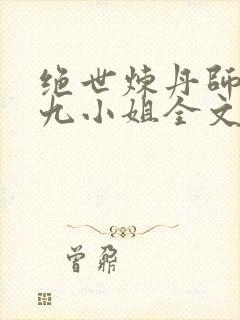 绝世炼丹師
九小姐全文
曾鼐